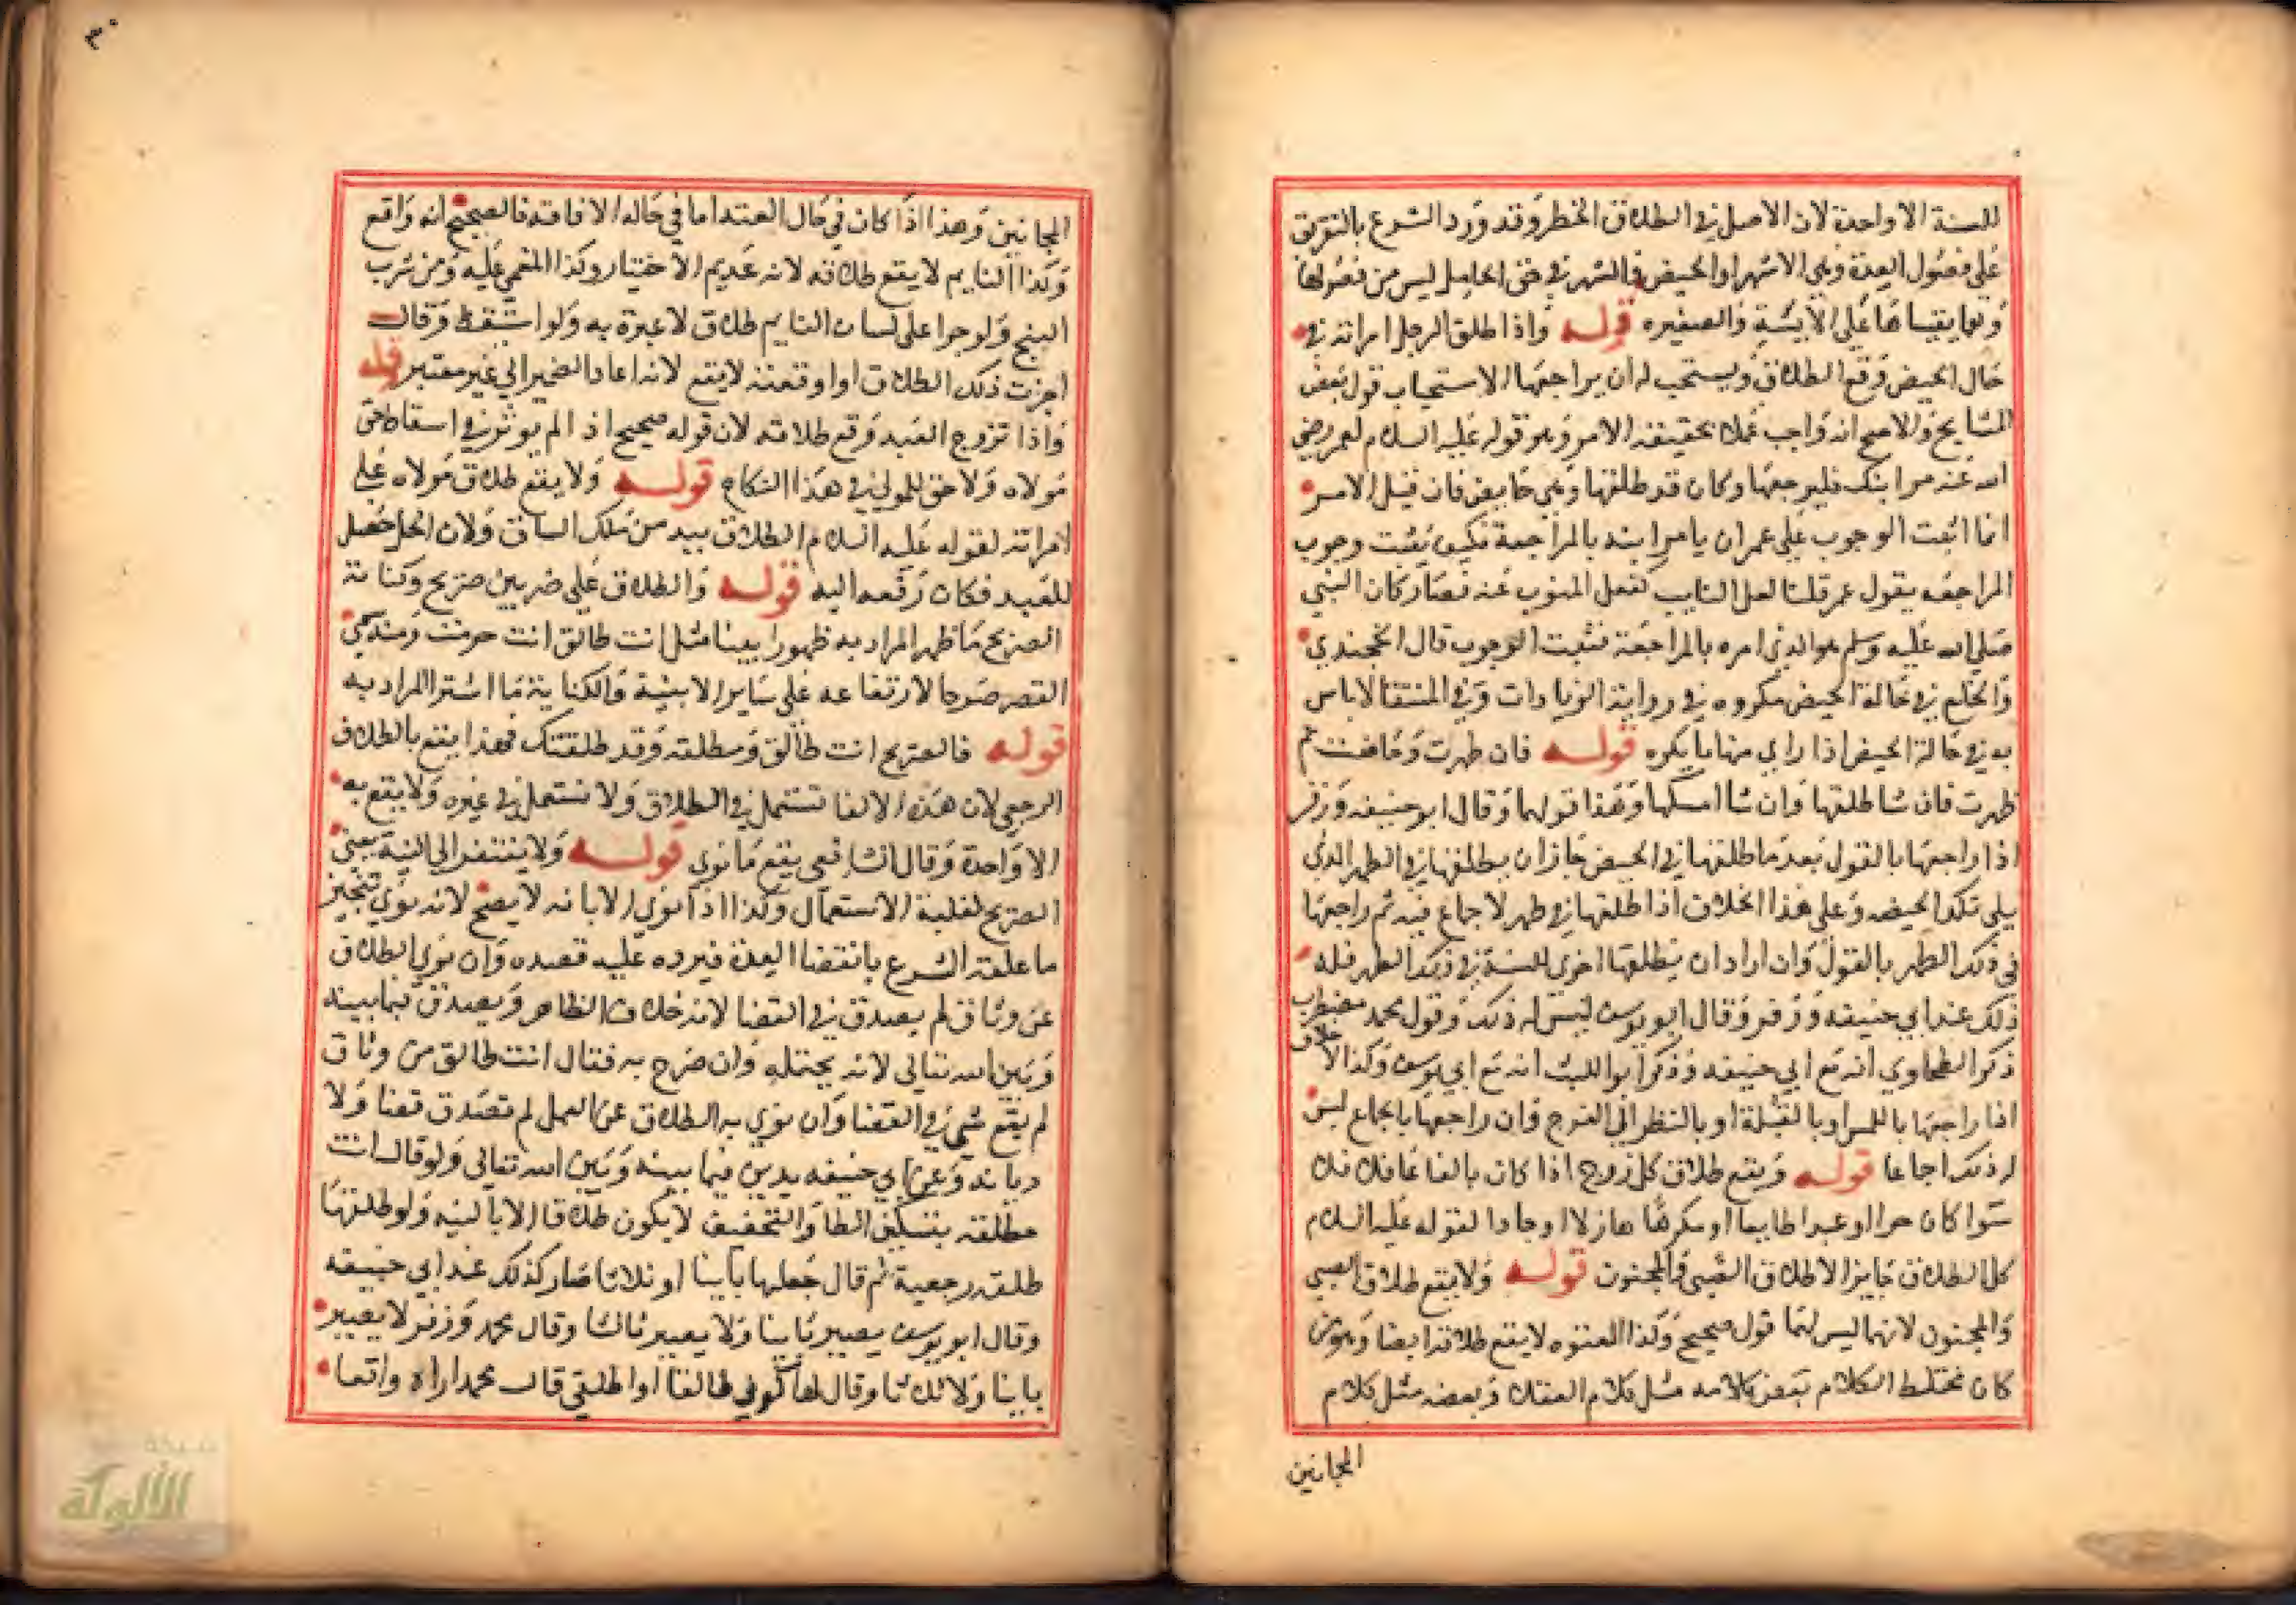 للسنة الا واحدة لان الاصل في الطلاق الحظر وقد ورد الشرع بالتفريق
على فصول العدة وهي الاشهر او الحيض والشهر في حق الحامل ليس من فصولها
وانما يقيسها على الآيسة والصغيره قوله واذا طلق الرجل امراته في
حال الحيض وقع الطلاق ويستحب له ان يراجعها الاستحباب قول بعض
المشايخ والاصح انه واجب عملا بحقيقة الامر وهو قوله عليه السلام لعمر رضي
الله عنه مر ابنك فليراجعها وكان قد طلقها وهي حايض فان قيل الامر
انما اثبت الوجوب على عمر ان يامر ابنه بالمراجعة فكيف يثبت وجوب
المراجعه بقول عمر قلنا فعل النايب كفعل المنوب عنه فصار كان النبي
صلى الله عليه وسلم هو الذي امره بالمراجعة فثبت الوجوب قال الخجندي
والخلع في حالة الحيض مكروه في رواية الزيادات وفي المنتقا لا باس
به في حالة الحيض اذا راى منها ما يكره قوله فان طهرت وحاضت ثم
طهرت فان شا طلقها وان شا امسكها وهذا قولهما وقال ابو حنيفه وزفر
اذا راجعها بالقول بعد ما طلقها في الحيض جاز ان يطلقها في الطهر الذي
يلي تلك الحيضه وعلى هذا الخلاف اذا طلقها في طهر لا جماع فيه ثم راجعها
في ذلك الطهر بالقول وان اراد ان يطلقها اخرى للسنة في ذلك الطهر فله
ذلك عند ابي حنيفه وزفر وقال ابو يوسف ليس له ذلك وقول محمد مضطرب
ذكر الطحاوي انه مع ابي حنيفه وذكر ابو الليث انه مع ابي يوسف وكذا الا
خلاف
اذا راجعها باللمس او بالقبلة او بالنظر الى الفرج وان راجعها بالجماع ليس
له ذلك اجماعا قوله ويقع طلاق كل زوج اذا كان بالغا عاقلا
سوا كان حرا او عبدا طايعا او مكرها هازلا او جادا لقوله عليه السلام
كل الطلاق جايز الا طلاق الصبي والمجنون قوله ولا يقع طلاق الصبي
والمجنون لانهما ليس لهما قول صحيح وكذا المعتوه لا يقع طلاقه ايضا وهو من
كان مختلط الكلام بعض كلامه مثل كلام العقلا وبعضه مثل كلام
المجانين
المجانين وهذا اذا كان في حال العته اما في حاله الافاقه فالصحيح انه واقع
وكذا النايم لا يقع طلاقه لانه عديم الاختيار وكذا المغمى عليه ومن شرب
البنج ولو جرا على لسان النايم طلاق لا عبرة به ولو استيقظ وقال
اجزت ذلك الطلاق او اوقعته لا يقع لانه اعاد الضمير الى غير معتبر قوله
واذا تزوج العبد وقع طلاقه لان قوله صحيح اذ الم يوثر في اسقاط حق
مولاه ولا حق للمولى في هذا النكاح قوله ولا يقع طلاق مولاه على
امراته لقوله عليه السلام الطلاق بيد من ملك الساق ولان الحل حصل
للعبد فكان رفعه اليه قوله والطلاق على ضربين صريح وكناية
الصريح ما ظهر المراد به ظهورا بينا مثل انت طالق انت حرمت ومنه سمي
القصر صرحا لارتفاعه على ساير الابنية والكناية ما استتر المراد به
قوله فالصريح انت طالق ومطلقه وقد طلقتك فهذا يقع بالطلاق
الرجعي لان هذه الالفا تستعمل في الطلاق ولا تستعمل في غيره ولا يقع به
الا واحدة وقال الشافعي يقع ما نوى قوله ولا يفتقر الى النية يعني
الصريح لغلبة الاستعمال وكذا اذا نوى الابانه لا يصح لانه نوى تنجيز
ما علقه الشرع بانقضا العدة فيرد عليه قصده وان نوى الطلاق
عن وثاق لم يصدق في القضا لانه خلاف الظاهر ويصدق فيما بينه
وبين الله تعالى لانه يحتمله وان صرح به فقال انت طالق من وثاق
لم يقع شي في القضا وان نوى به الطلاق عن العمل لم تصدق قضا ولا
ديانه وعن ابي حنيفه يدين فيما بينه وبين الله تعالى ولو قال انت
مطلقه بتسكين الطا والتخفيف لا يكون طلاقا الا بالنيه ولو طلقها
طلقه رجعية ثم قال جعلها باينا او ثلاثا صار كذلك عند ابي حنيفه
وقال ابو يوسف يصير باينا ولا يصير ثالثا وقال محمد وزفر لا يصير
باينا ولا ثلاثا وقال لها كوني طالقا او اطلقي قال محمد اراه واقعا
شبكة
الألوكة